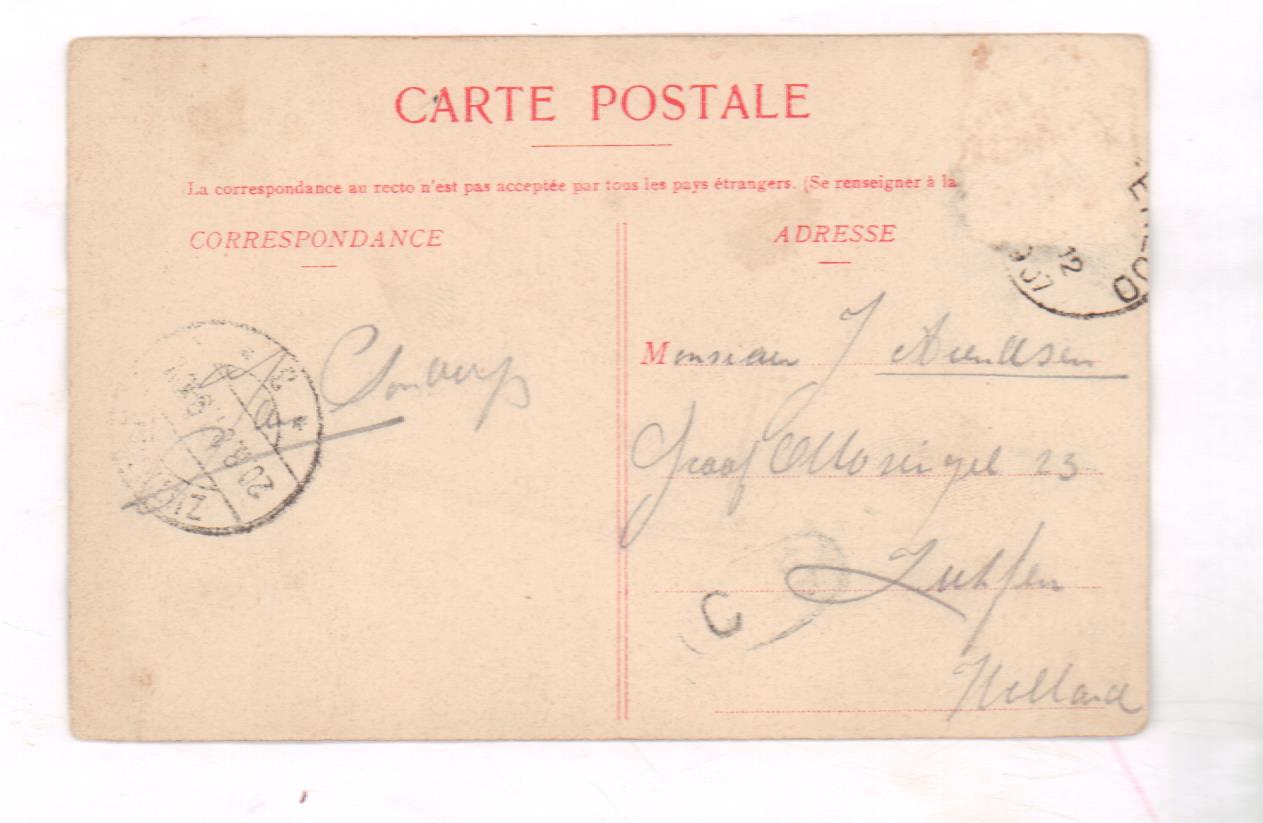 CARTE POSTALE
La correspondance au recto n'est pas acceptée par tous les pays étrangers. (Se renseigner à la
CORRESPONDANCE
ADRESSE
12
907
Monsieur J Arendsen
Graaf Ottosingel 23
Zutfen
Holland
C